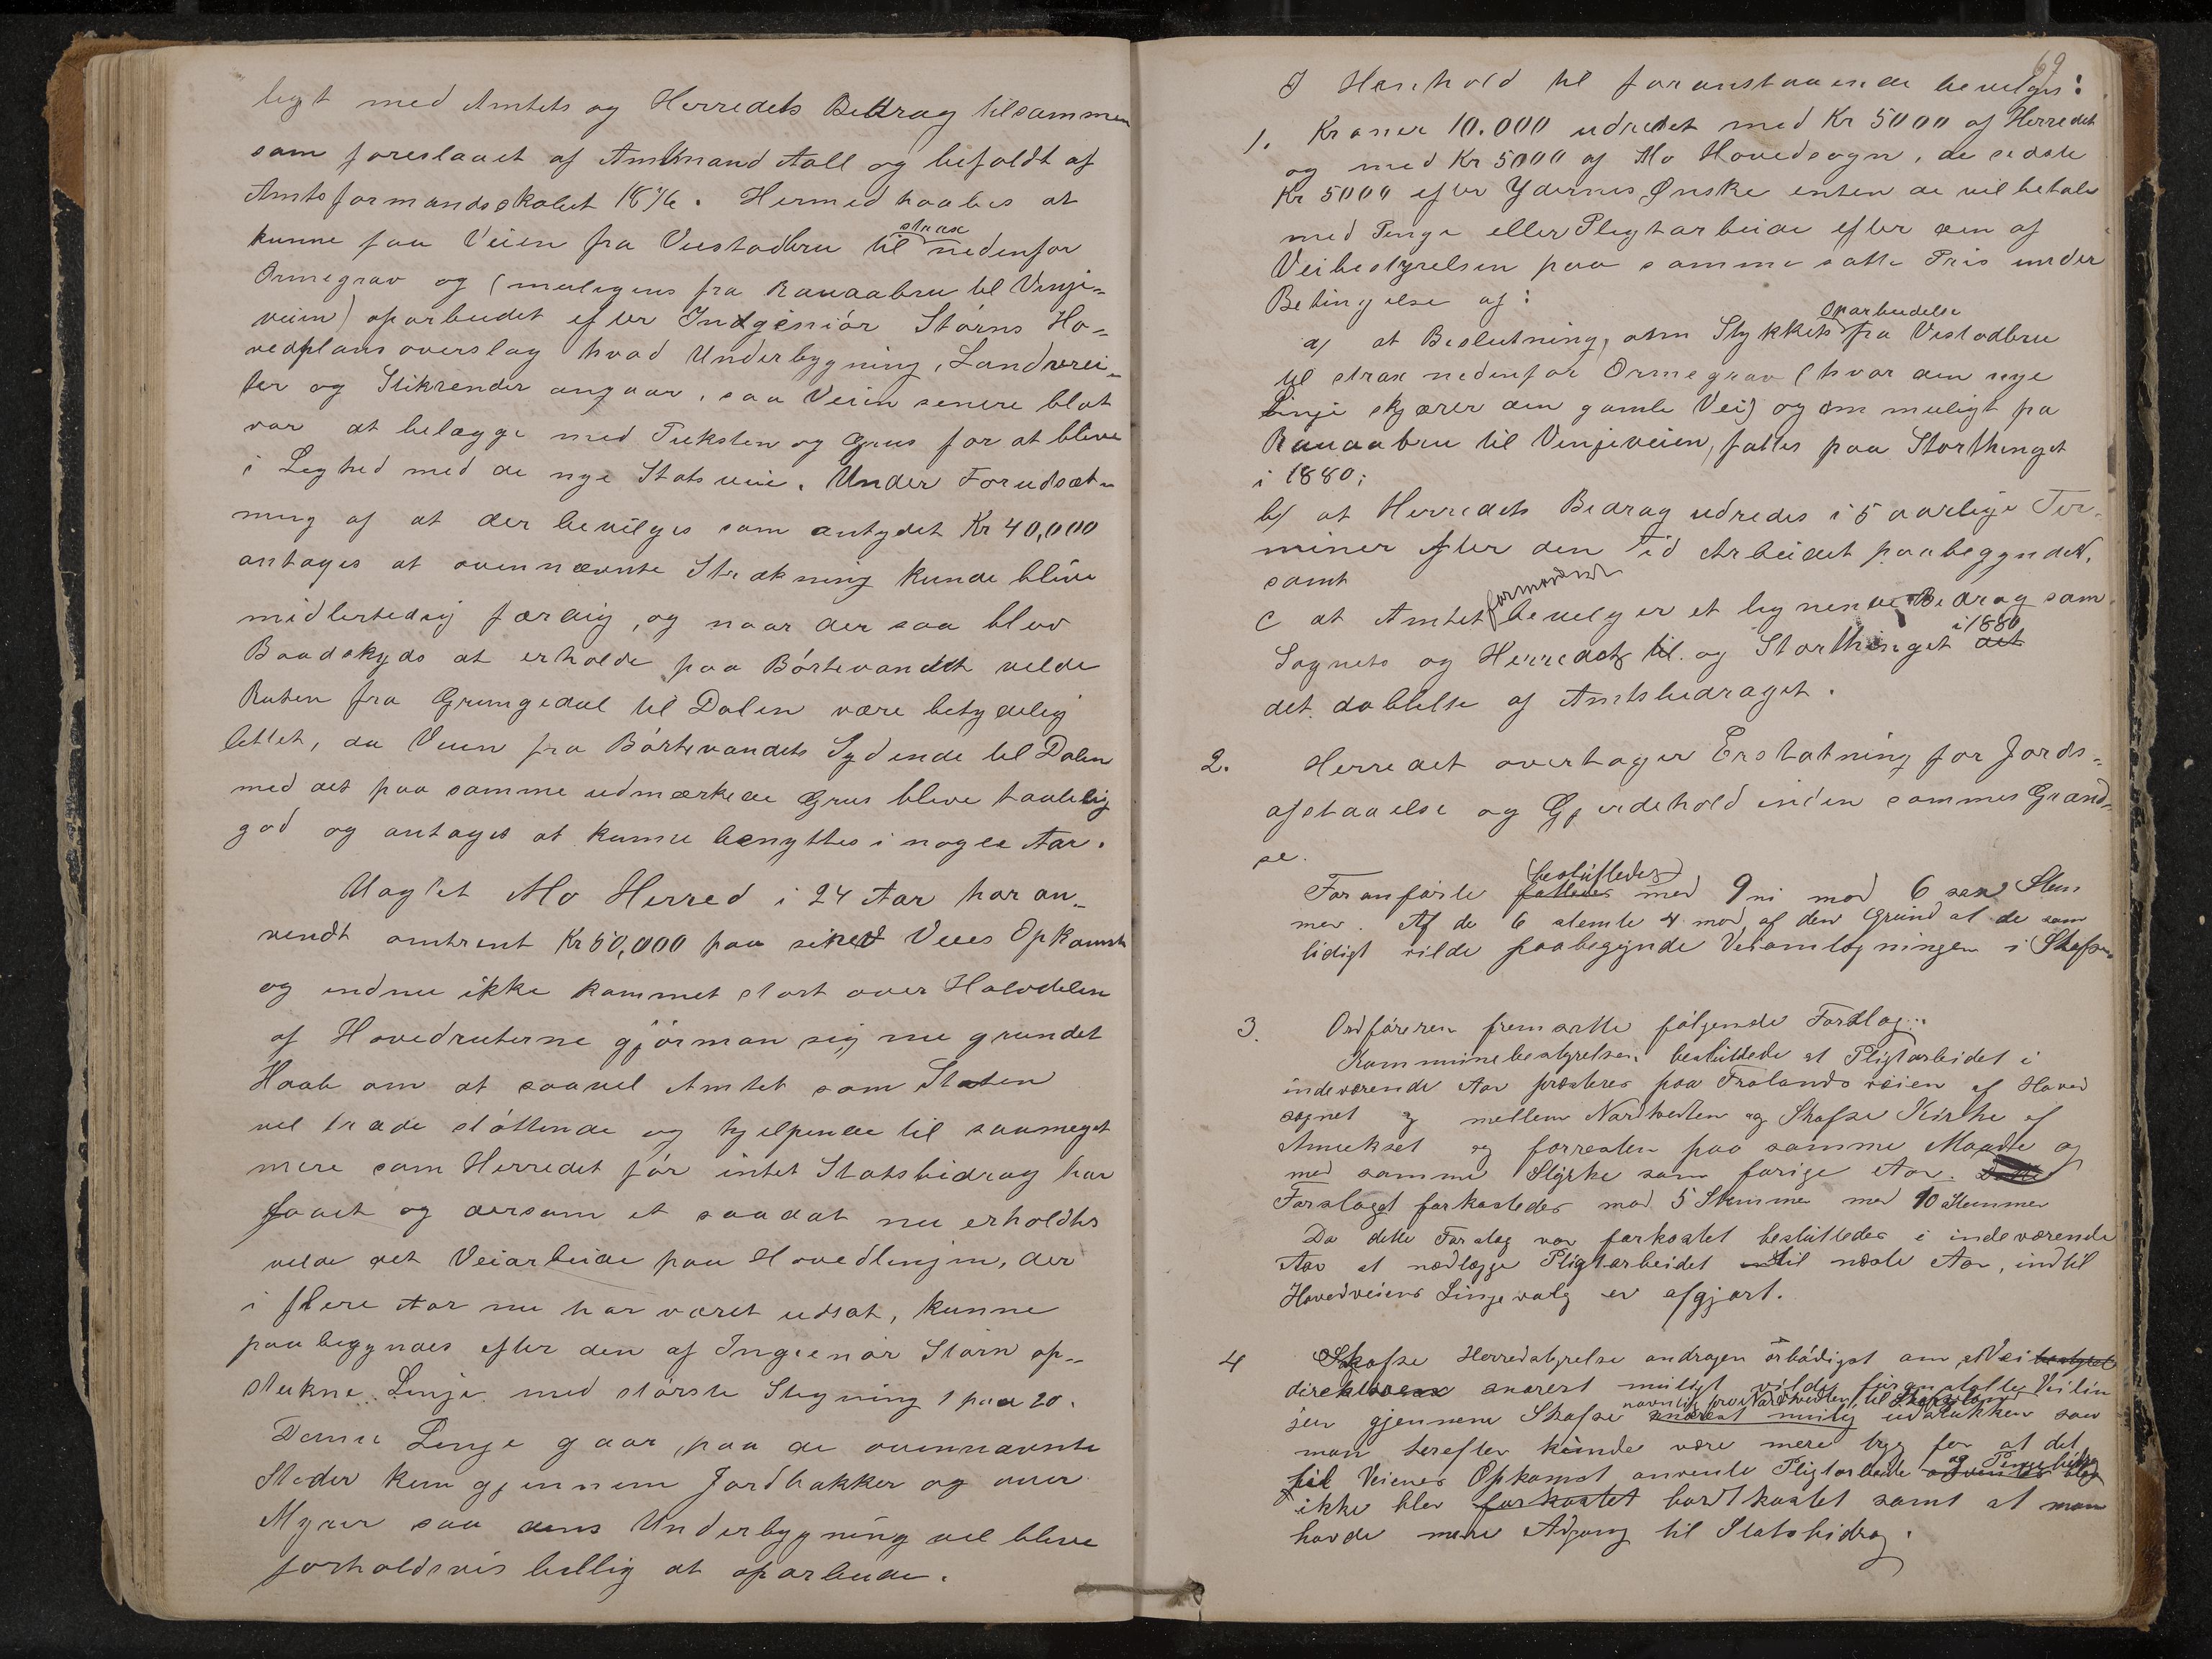 ligt med Amtets og Herredets Bedrag tilsammen
som foreslaaet af Amtmand Aall og bifaldt af
Amtsformandsskabet. Hermed haabes at
kunne faa Veien fra Vistadbru til strax nedenfor
Ormegrav og (muligens fra Rauaabru til Vinje-
veien) oparbeidet efter Ingeniør Størns Ho-
vedplans overslag hvad Underbygning, Landvei-
ter og Stikrender angaar, saa Veien senere blot
var at belægge med Puksten og Grus for at blive
i Lighed med de nye Statsveie. Under Forudsæt-
ning af at der bevilges som antydet Kr 40,000
antages at ovennævnte Strækning kunde blive
midlertidig færdig, og naar der saa blev
Baadskyds at erholde paa Børtevandet vilde
Ruten fra Grungedal til Dalen være betydelig
lettet, da Veien fra Børtevandets Sydende til Dalen
med det paa samme udmærkede Grus bliver taalelig
god og antages at kunne benyttes i nogle Aar.
Uagtet Mo Herred i 24 Aar har an-
vendt omtrent Kr 50,000 paa sine Veies Opkomst
og endnu ikke kommet stort over Halvdelen
af Hovedruterne gjør man sig nu grundet
Haab om at saavel Amtet som Staten
vil træde støttende og hjelpende til saameget
mere som Herredet før intet Statsbidrag har
faaet og dersom et saadat nu erholdtes
vilde det Veiarbeide paa Hovedlinjen, der
i flere Aar nu har været udsat, kunne
paabegyndes efter den af Ingeniør Størn op-
stukne Linje med største Stigning 1 paa 20.
Denne Linje gaar, paa de ovennævnte
Steder kun gjennem Jordbakker og over
Myrer saa dens Underbygning vil blive
forholdsvis billig at oparbeide.
69
I Henhold til foranstaaende bevilges:
1. Kroner 10.000 udredet med Kr 5000 af Herredet
og med Kr 5000 af Mo Hovedsogn, de sidste
Kr 5000 efter Ydernes Ønske enten de vil betale
med Penge eller Pligtarbeide efter den af
Veibestyrelsen paa samme satte Pris under
Betingelse af:
a) at Beslutning, om Stykkets Oparbeidelse fra Vistadbru
til strax nedenfor Ormegrav (hvor den nye
Linje skjærer den gamle Vei) og om muligt fra
Rauaabru til Vinjeveien, fattes paa Storthinget
i 1880;
b) at Herredets Bedrag udredes i 5 aarlige Ter-
miner efter den Tid Arbeidet paabegyndes,
samt
c at Amtet bevilger et lignende Bedrag som
Sognets og Herredets til. og Storthinget i 1880 det
det dobbelte af Amtsbedraget.
2. Herredet overtager Erstatning for Jords-
afstaaelse og Gjerdehold inden sammes Grænd-
se.
Foranførte fattedes (besluttedes) med 9 ni mod 6 sex Stem
mer. Af de 6 stemte 4 mod af den Grund at de sam
tidigt vilde paabegynde Veiomlægningen i Skafse
3. Ordføreren fremsatte følgende Forslag:
Kommunebestyrelsen besluttede at Pligtarbeidet i
indeværende Aar præsteres paa Frolandsveien af Hoved
sognet og mellem Nordtvedten og Skafse Kirke af
Annekset og forresten paa samme Maade og
med samme Styrke som forige Aar.
Forslaget forkastedes med 5 Stemmer mod 10 Stemmer
Da dette Forslag var forkastet besluttedes i indeværende
Aar at nedlægge Pligtarbeidet til næste Aar, indtil
Hovedveiens Linjevalg er afgjort.
4 Skafse Herredstyrelse andrager ærbødigst om, at Vei bestyrel
direktøren snarest muligt vilde foranstalte Veilin
jen gjennem Skafse snarest mulig navnlig fra Nordtvedten til udstukken saa
man derefter kunde være mere tryg for at det
til Veienes Opkomst anvente Pligtarbeide og Pengebidrag
ikke blev forkastet bortkastet samt at man
havde mere Adgang til Statsbidrag.